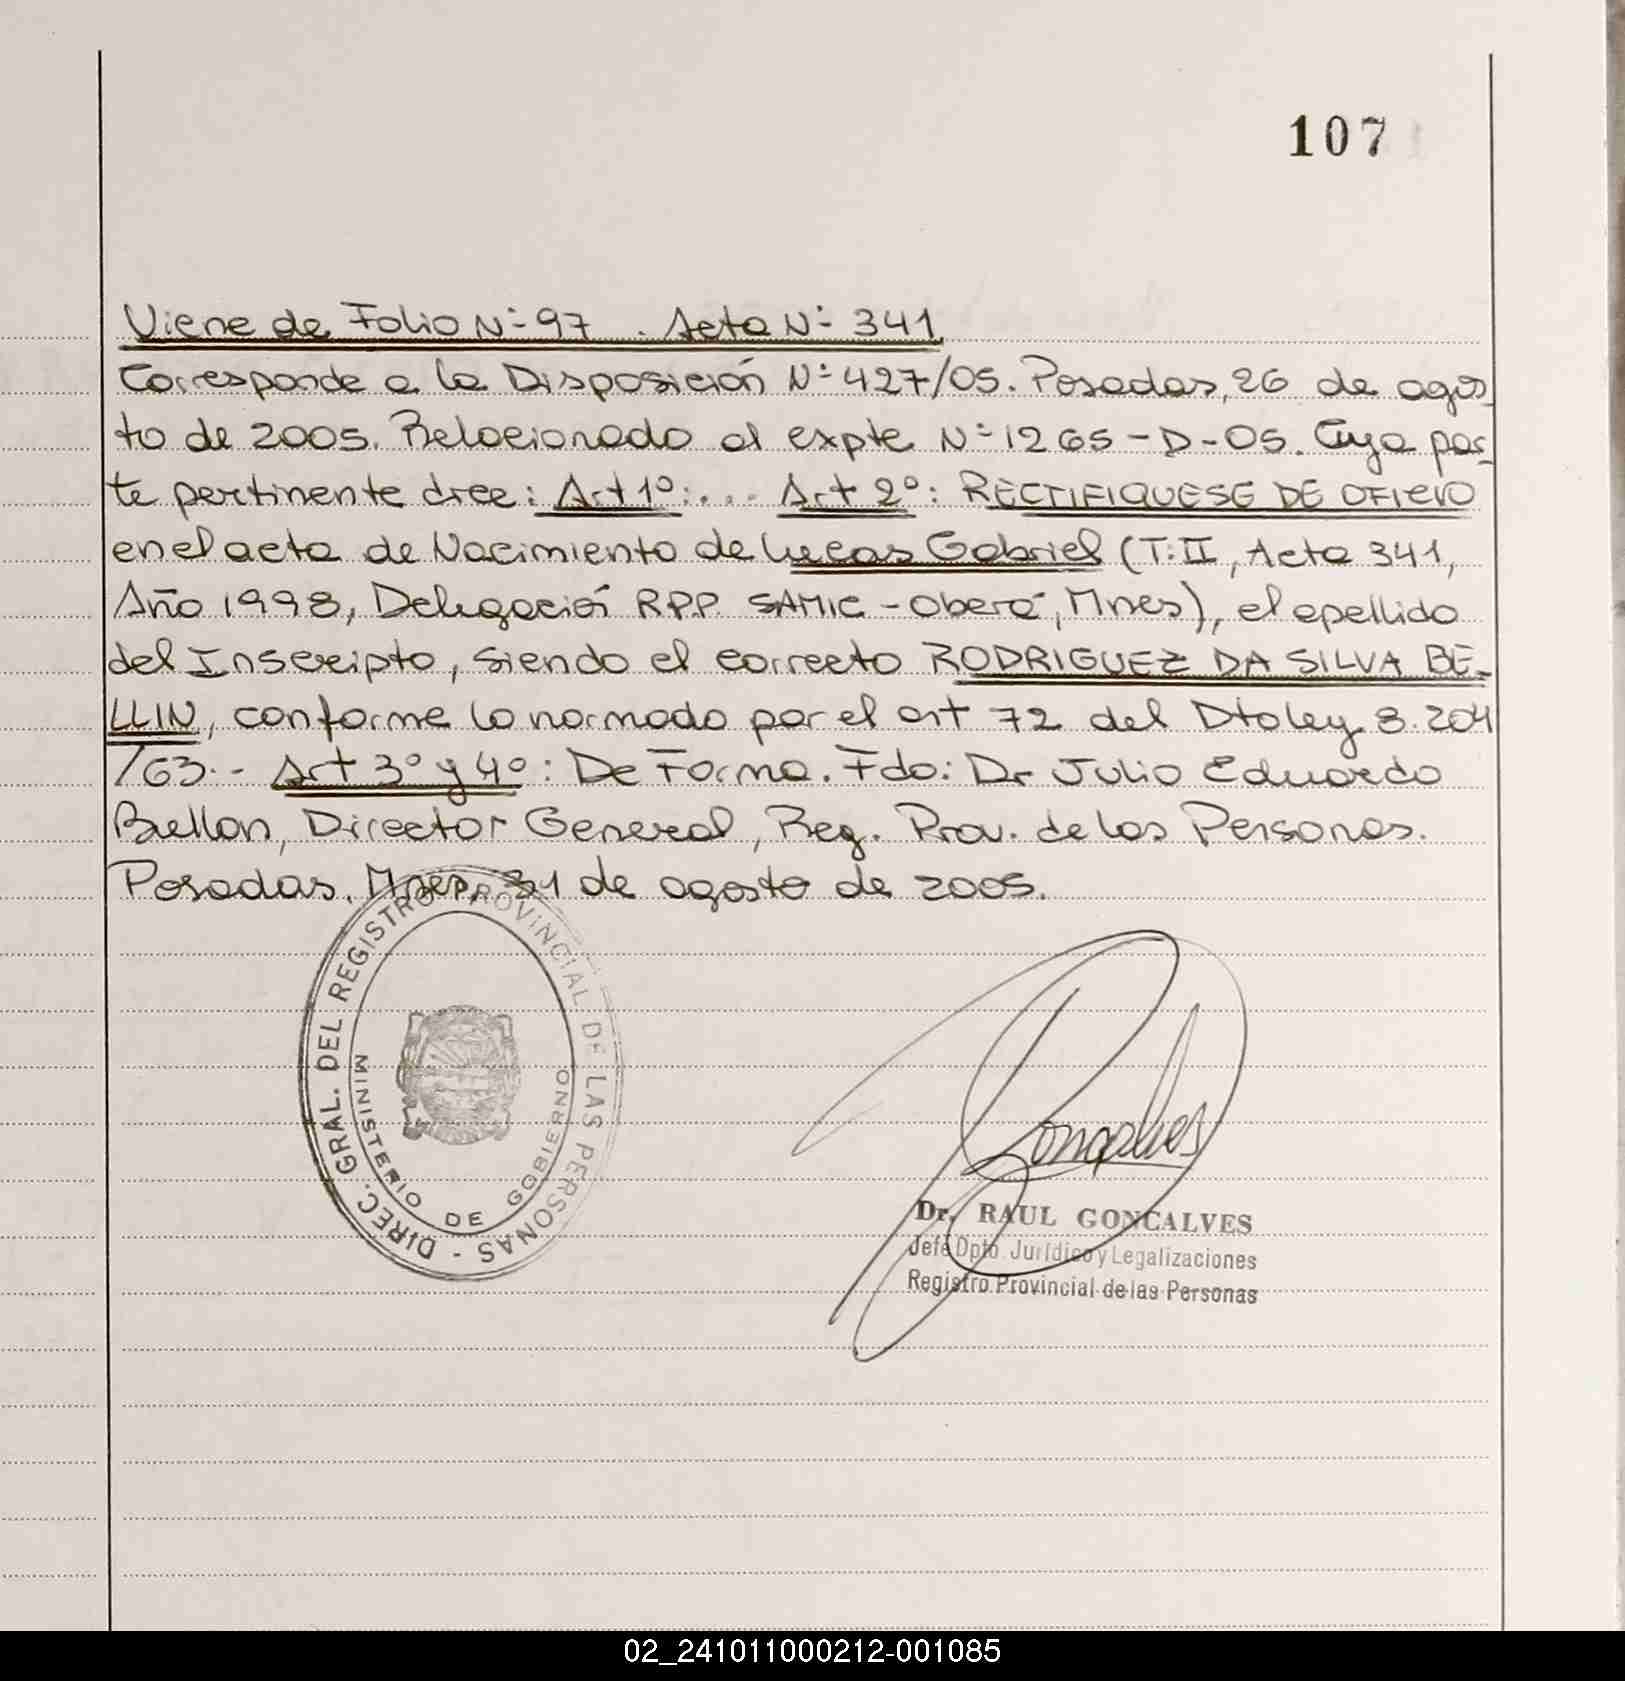 107
Viene de Folio Nº 97 . Acta Nº 341
Corresponde a la Disposición Nº 427/05. Posadas, 26 de agos
to de 2005. Relacionado al expte Nº 1265-D-05. Cuya par
te pertinente dice: Art 1º:... Art 2º: RECTIFIQUESE DE OFICIO
en el acta de Nacimiento de Lucas Gabriel (T: II, Acta 341,
Año 1998, Delegación RPP SAMIC - Oberá, Mnes), el apellido
del Inscripto, siendo el correcto RODRIGUEZ DA SILVA BE-
LLIN, conforme lo normado por el art 72 del Dto ley 8.204
/63.- Art 3º y 4º: De Forma. Fdo: Dr Julio Eduardo
Bellon, Director General, Reg. Prov. de las Personas.
Posadas, Mnes, 31 de agosto de 2005.
DIREC. GRAL. DEL REGISTRO PROVINCIAL DE LAS PERSONAS -
MINISTERIO DE GOBIERNO
Goncalves
Dr. RAUL GONCALVES
Jefe Dpto. Jurídico y Legalizaciones
Registro Provincial de las Personas
02_241011000212-001085